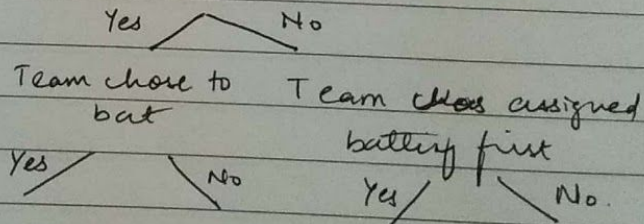 Yes No
Team chose to Team assigned
bat batting first
Yes No Yes No.